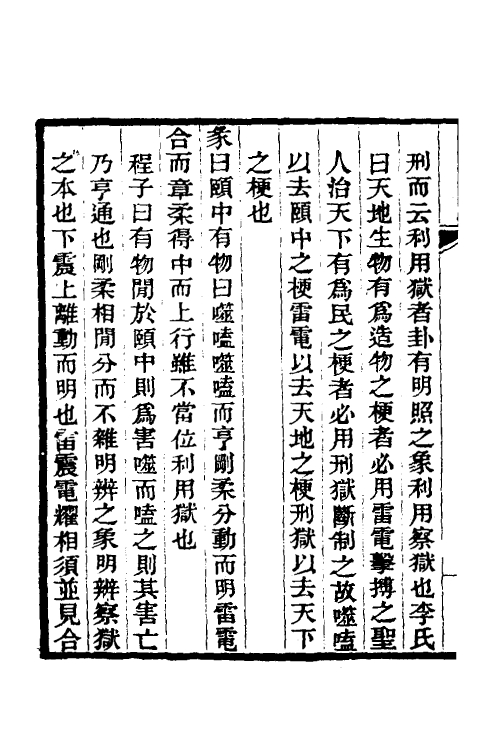 刑而云利用獄者卦有明照之象利用察獄也李氏
曰天地生物有爲造物之梗者必用雷電擊搏之聖
人治天下有爲民之梗者必用刑獄斷制之故噬嗑
以去頤中之梗雷電以去天地之梗刑獄以去天下
之梗也
彖曰頤中有物曰噬嗑噬嗑而亨剛柔分動而明雷電
合而章柔得中而上行雖不當位利用獄也
程子曰有物閒於頤中則爲害噬而嗑之則其害亡
乃亨通也剛柔相閒分而不雜明辨之象明辨察獄
之本也下震上離動而明也雷震電耀相須並見合